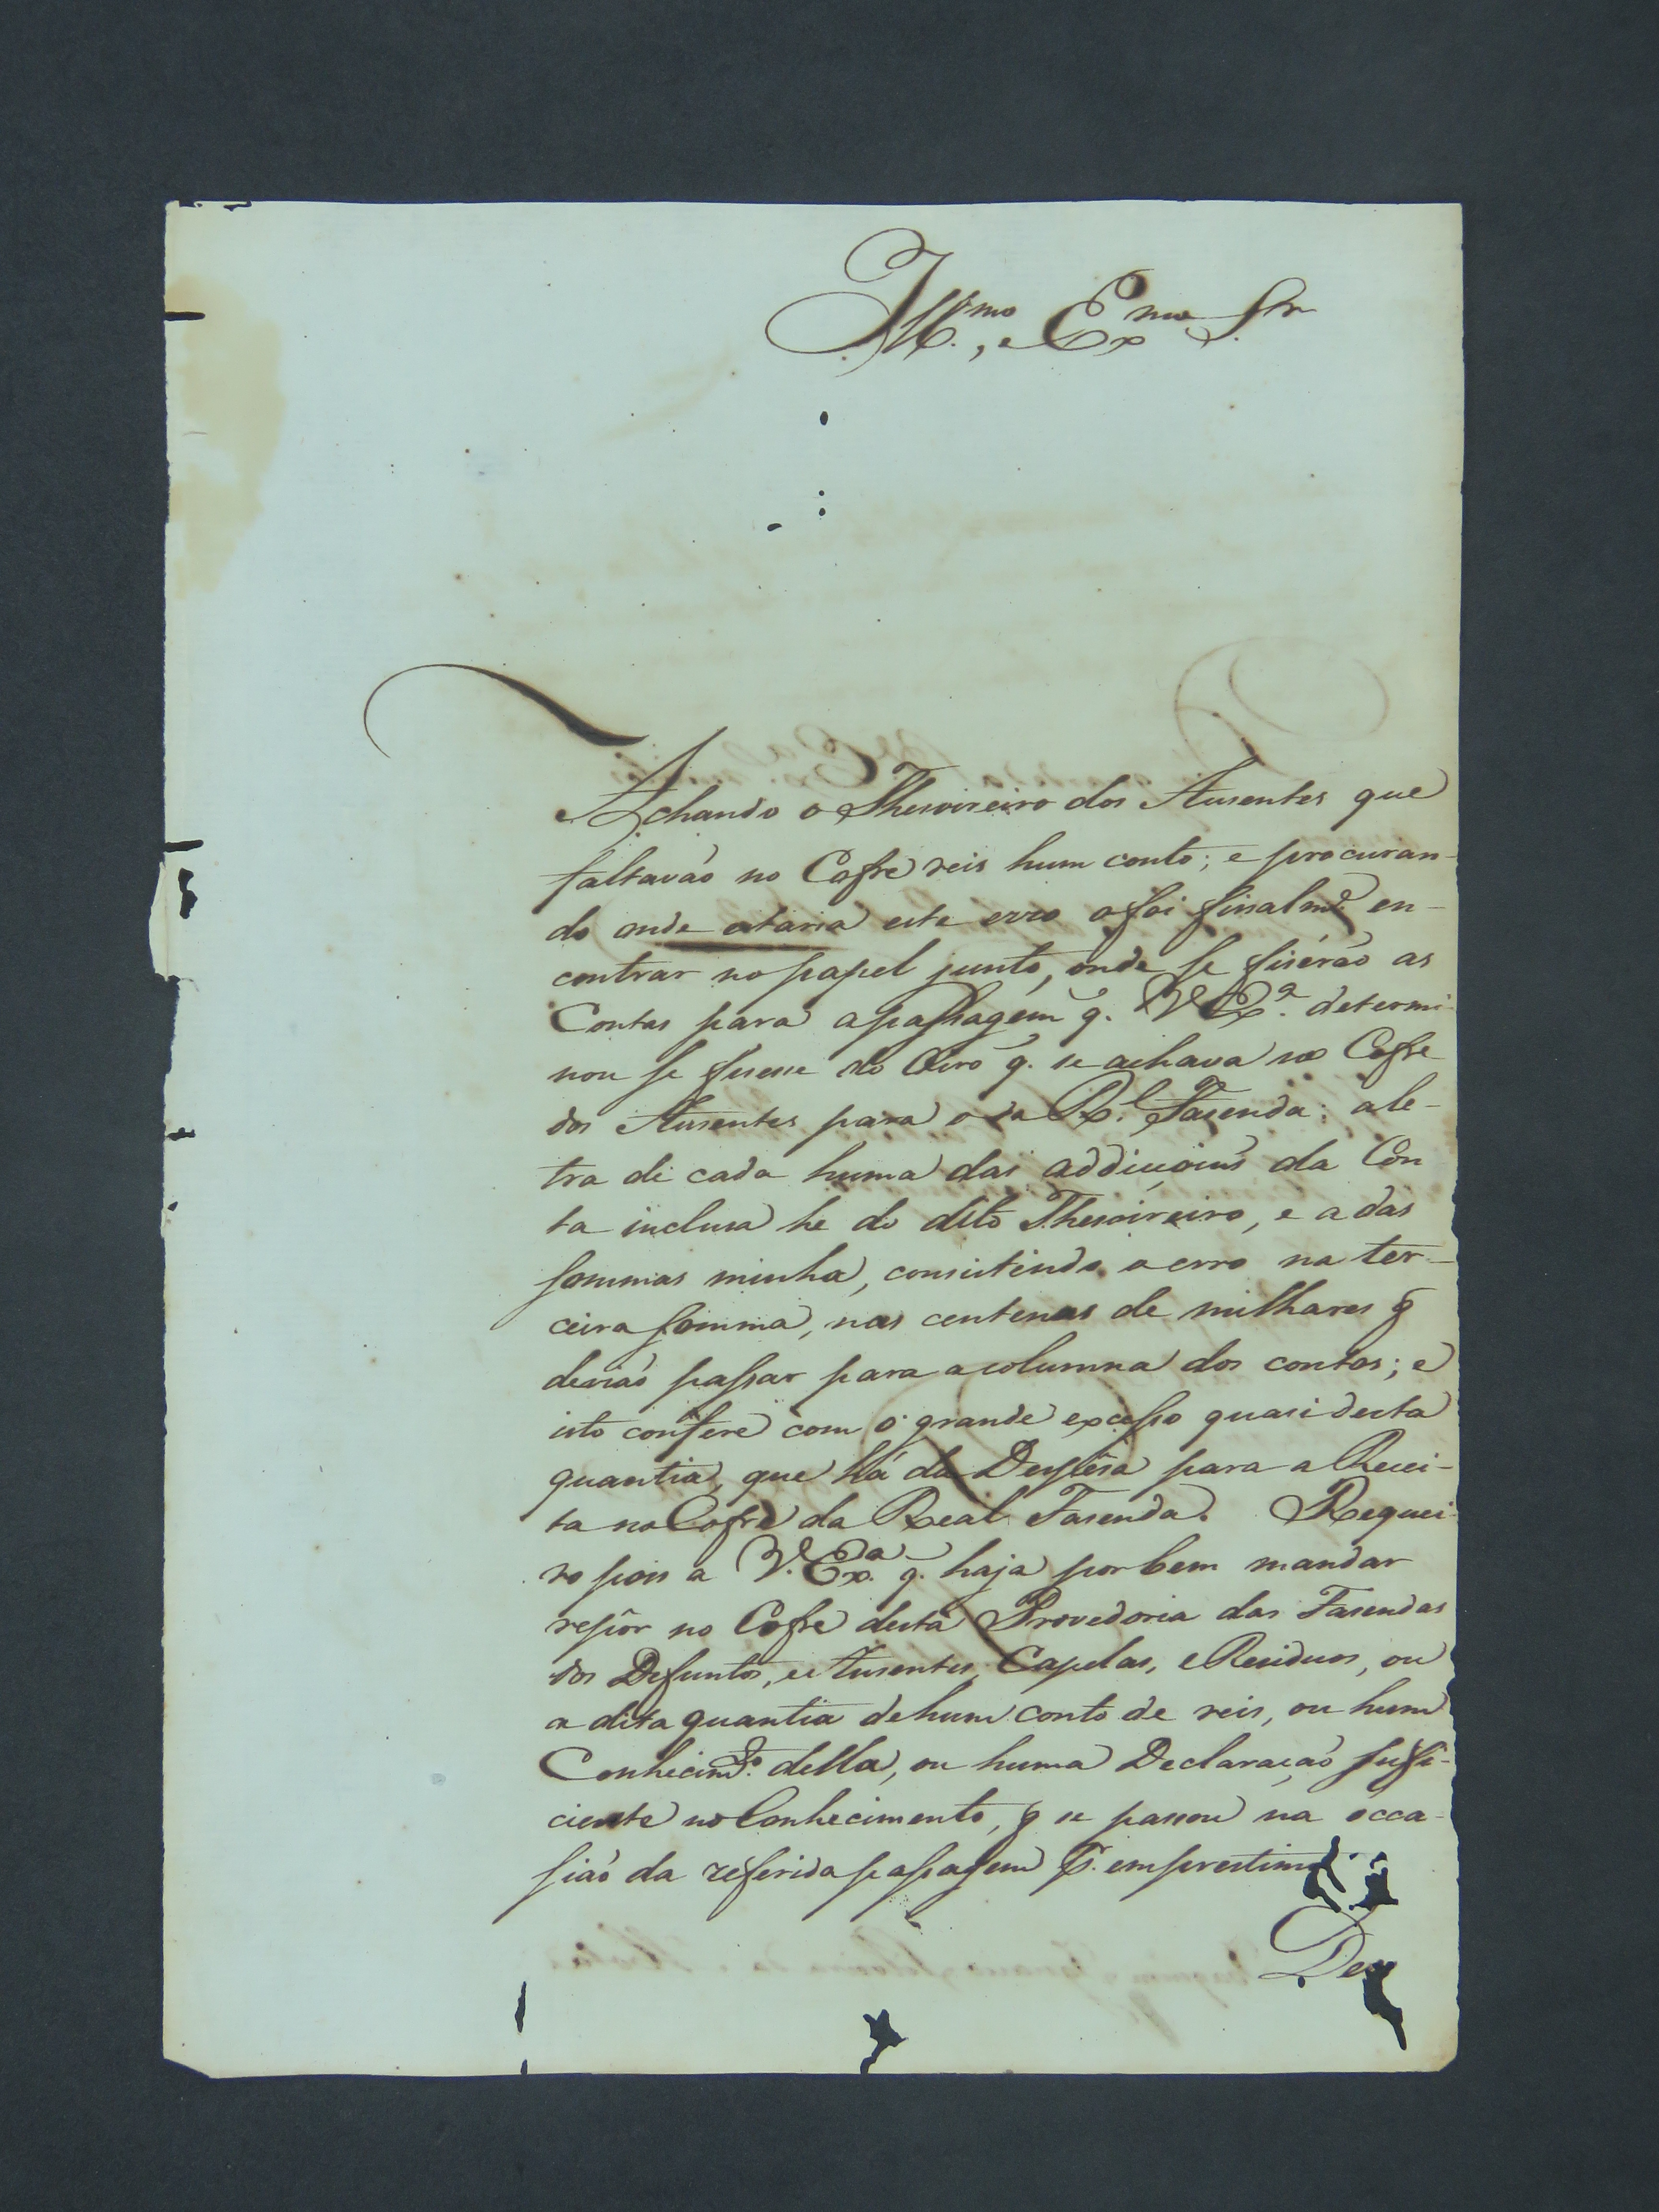 Ill.mo, e Ex.mo Sr.
Achando o Thesoireiro dos Ausentes que
faltavaõ no Cofre reis hum conto; e procuran-
do onde estaria este erro o foi finalm.e en-
contrar no papel junto, onde se fiseraõ as
Contas para a passagem q. V. Ex.a determi-
nou se fisesse do Oiro q. se achava no Cofre
dos Ausentes para o da R.l Fasenda: a le-
tra de cada huma das addiçoins da Con
ta inclusa he do dito Thesoireiro, e a das
sommas minha, consistindo o erro na ter-
ceira somma, nas centenas de milhares q
deviaõ passar para a columna dos contos; e
isto confere com o grande excesso quasi desta
quantia, que há da Despêsa para a Recei-
ta no Cofre da Real Fasenda. Requei-
ro pois a V. Ex.a q. haja por bem mandar
repôr no Cofre desta Provedoria das Fasendas
dos Defuntos, e Ausentes, Capelas, e Residuos, ou
a dita quantia de hum conto de reis, ou hum
Conhecim.to della, ou huma Declaraçaõ sufi-
ciente no Conhecimento, q se passou na occa-
siaõ da referida passagem p. emprestimo.
Deu